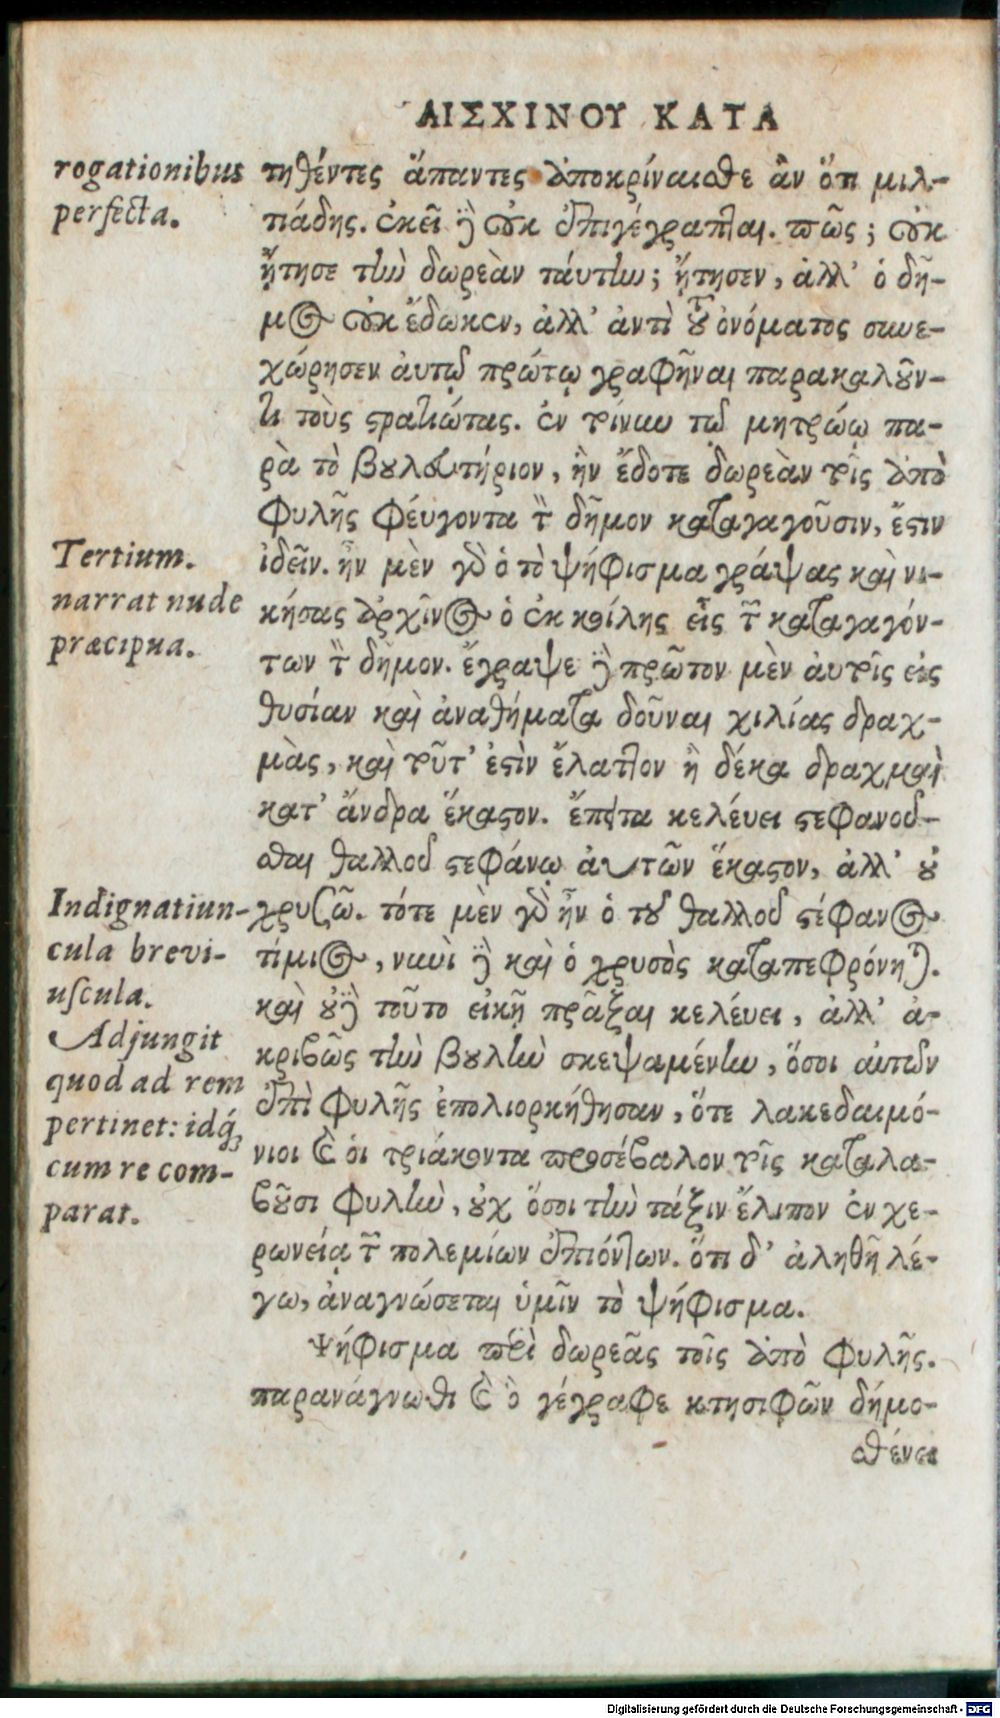 ΑΙΣΧΙΝΟΥ ΚΑΤΑ
rogationibus
perfecta.
τηθέντες ἅπαντες ἀποκρίναισθε ἂν ὅτι μιλ-
τιάδης. ἐκεῖ δὲ οὐκ ἐπιγέγραπται. πῶς; οὐκ
ᾔτησε τὴν δωρεὰν ταύτην; ᾔτησεν, ἀλλ' ὁ δῆ-
μος οὐκ ἔδωκεν, ἀλλ' ἀντὶ τοῦ ὀνόματος συνε-
χώρησεν αὐτῷ πρώτῳ γραφῆναι παρακαλοῦν-
τι τοὺς στρατιώτας. ἐν τοίνυν τῷ μητρώῳ πα-
ρὰ τὸ βουλευτήριον, ἣν ἔδοτε δωρεὰν τοῖς ἀπὸ
Φυλῆς φεύγοντα τὸν δῆμον καταγαγοῦσιν, ἔστιν
ἰδεῖν. ἦν μὲν γὰρ ὁ τὸ ψήφισμα γράψας καὶ νι-
κήσας ἀρχῖνος ὁ ἐκ κοίλης εἷς τῶν καταγαγόν-
των τὸν δῆμον. ἔγραψε δὲ πρῶτον μὲν αὐτοῖς εἰς
θυσίαν καὶ ἀναθήματα δοῦναι χιλίας δραχ-
μὰς, καὶ τοῦτ' ἐστὶν ἔλαττον ἢ δέκα δραχμαὶ
κατ' ἄνδρα ἕκαστον. ἔπειτα κελεύει στεφανοῦ-
σθαι θαλλοῦ στεφάνῳ αὐτῶν ἕκαστον, ἀλλ' οὐ
χρυσῷ. τότε μὲν γὰρ ἦν ὁ τοῦ θαλλοῦ στέφανος
τίμιος, νυνὶ δὲ καὶ ὁ χρυσὸς καταπεφρόνηται.
καὶ οὐδὲ τοῦτο εἰκῇ πρᾶξαι κελεύει, ἀλλ' ἀ-
κριβῶς τὴν βουλὴν σκεψαμένην, ὅσοι αὐτῶν
ἐπὶ Φυλῆς ἐπολιορκήθησαν, ὅτε λακεδαιμό-
νιοι καὶ οἱ τριάκοντα προσέβαλον τοῖς καταλα-
βοῦσι φυλὴν, οὐχ ὅσοι τὴν τάξιν ἔλιπον ἐν χε-
ρωνείᾳ τῶν πολεμίων ἐπιόντων. ὅτι δ' ἀληθῆ λέ-
γω, ἀναγνώσεται ὑμῖν τὸ ψήφισμα.
Ψήφισμα περὶ δωρεᾶς τοῖς ἀπὸ φυλῆς.
παρανάγνωθι καὶ ὃ γέγραφε κτησιφῶν δήμο-
σθένει
Tertium.
narrat nude
præcipua.
Indignatiun-
cula brevi-
uscula.
Adjungit
quod ad rem
pertinet: idq́;
cum re com-
parat.
Digitalisierung gefördert durch die Deutsche Forschungsgemeinschaft - DFG